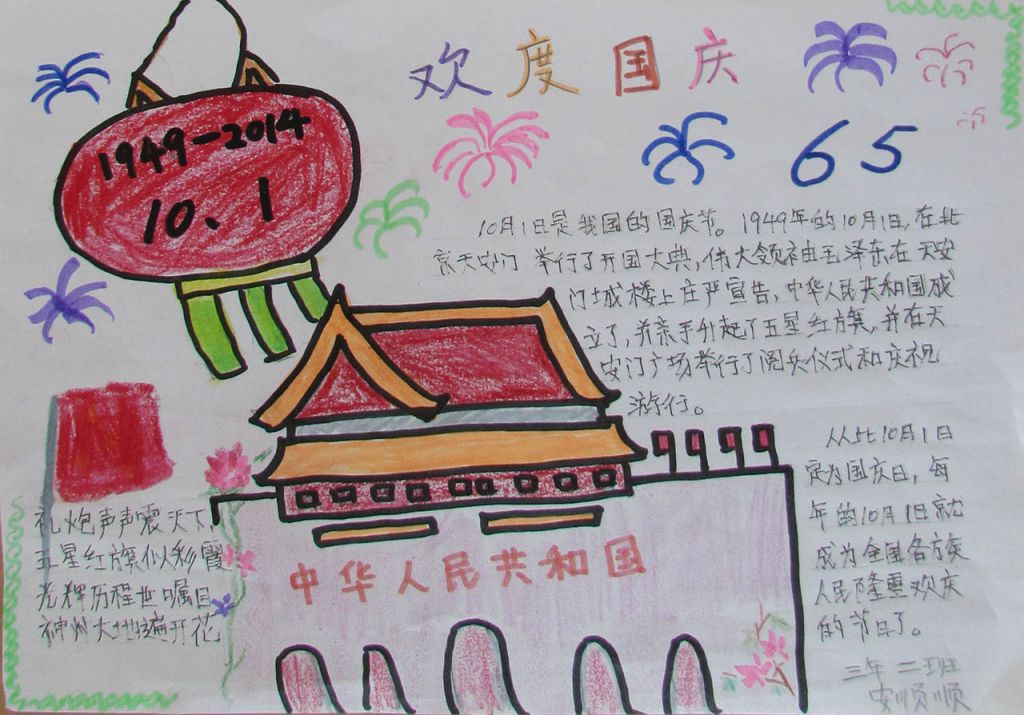 欢度国庆
1949-2014
10.1
65
10月1日是我国的国庆节。1949年的10月1日,在北
京天安门 举行了开国大典,伟大领袖毛泽东在天安
门城楼上庄严宣告,中华人民共和国成
立了,并亲手升起了五星红旗,并在天
安门广场举行了阅兵仪式和庆祝
游行。
从此10月1日
定为国庆日,每
年的10月1日就
成为全国各族
人民隆重欢庆
的节日了。
礼炮声声震天下,
五星红旗似彩霞
光辉历程世瞩目
神州大地遍开花
中华人民共和国
三年二班
安顺顺